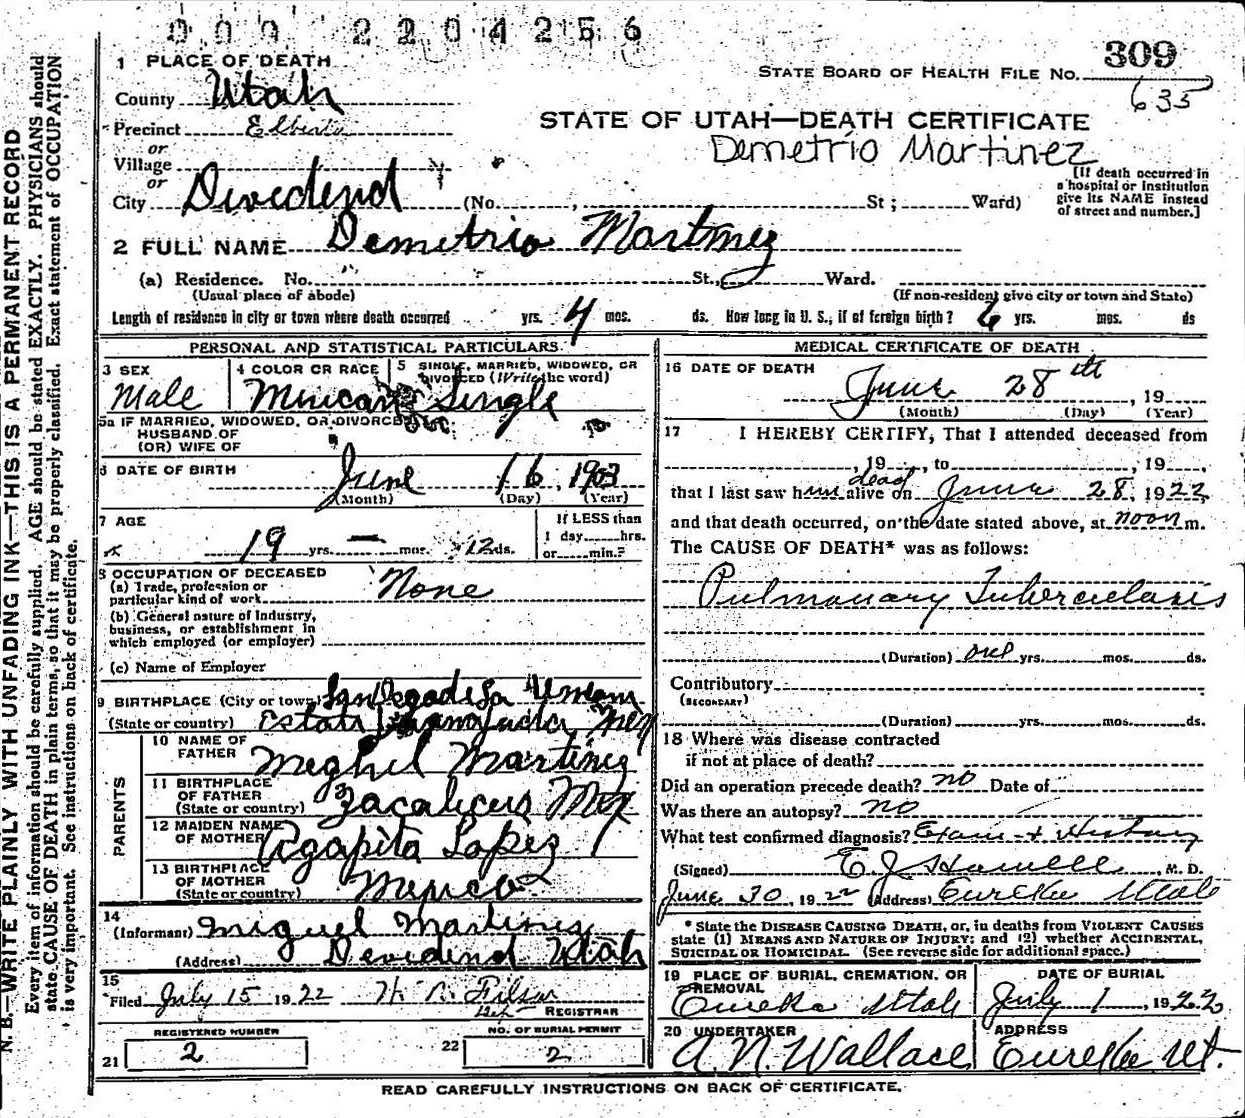 000 2204256
309
STATE BOARD OF HEALTH FILE NO.
635
1 PLACE OF DEATH
County Utah
Precinct Elberta
or
Village
or
City Dividend (No. , St ; Ward)
STATE OF UTAH—DEATH CERTIFICATE
Demetrio Martinez
[If death occurred in
a hospital or institution
give its NAME instead
of street and number.]
2 FULL NAME Demetrio Martinez
(a) Residence. No. St., Ward.
(Usual place of abode) (If non-resident give city or town and State)
Length of residence in city or town where death occurred yrs. 4 mos. ds. How long in U. S., if of foreign birth? 6 yrs. mos. ds
PERSONAL AND STATISTICAL PARTICULARS.
3 SEX
Male
4 COLOR OR RACE
Mexican
5 SINGLE, MARRIED, WIDOWED, OR
DIVORCED (Write the word)
Single
5a IF MARRIED, WIDOWED, OR DIVORCED
HUSBAND OF
(OR) WIFE OF
6 DATE OF BIRTH
June 16, 1903
(Month) (Day) (Year)
7 AGE
19 yrs. — mos. 12 ds.
If LESS than
1 day hrs.
or min.?
8 OCCUPATION OF DECEASED
(a) Trade, profession or
particular kind of work None
(b) General nature of Industry,
business, or establishment in
which employed (or employer)
(c) Name of Employer
9 BIRTHPLACE (City or town)
(State or country) Mex
PARENTS
10 NAME OF
FATHER Meghil Martinez
11 BIRTHPLACE
OF FATHER
(State or country) Mex
12 MAIDEN NAME
OF MOTHER Agapita Lopez
13 BIRTHPLACE
OF MOTHER
(State or country) Mexico
14
(Informant) Miguel Martinez
(Address) Devidend Utah
15
Filed July 15 1922
REGISTRAR
REGISTERED NUMBER
21 2
NO. OF BURIAL PERMIT
22 2
MEDICAL CERTIFICATE OF DEATH
16 DATE OF DEATH
June 28th, 19
(Month) (Day) (Year)
17 I HEREBY CERTIFY, That I attended deceased from
, 19 , to , 19 ,
dead
that I last saw him alive on June 28, 1922
and that death occurred, on the date stated above, at noon m.
The CAUSE OF DEATH* was as follows:
Pulmonary Tuberculosis
(Duration) one yrs. mos. ds.
Contributory
(SECONDARY)
(Duration) yrs. mos. ds.
18 Where was disease contracted
if not at place of death?
Did an operation precede death? no Date of
Was there an autopsy? no
What test confirmed diagnosis? Exam + History
(Signed) E. J. Howell, M. D.
June 30, 1922 (Address) Eureka Utah
* State the DISEASE CAUSING DEATH, or, in deaths from VIOLENT CAUSES
state (1) MEANS AND NATURE OF INJURY; and (2) whether ACCIDENTAL,
SUICIDAL OR HOMICIDAL. (See reverse side for additional space.)
19 PLACE OF BURIAL, CREMATION, OR
REMOVAL
Eureka Utah
DATE OF BURIAL
July 1, 1922
20 UNDERTAKER
A. N. Wallace
ADDRESS
Eureka Ut.
READ CAREFULLY INSTRUCTIONS ON BACK OF CERTIFICATE.
N. B.—WRITE PLAINLY WITH UNFADING INK—THIS IS A PERMANENT RECORD
Every item of information should be carefully supplied. AGE should be stated EXACTLY. PHYSICIANS should
state CAUSE OF DEATH in plain terms, so that it may be properly classified. Exact statement of OCCUPATION
is very important. See instructions on back of certificate.